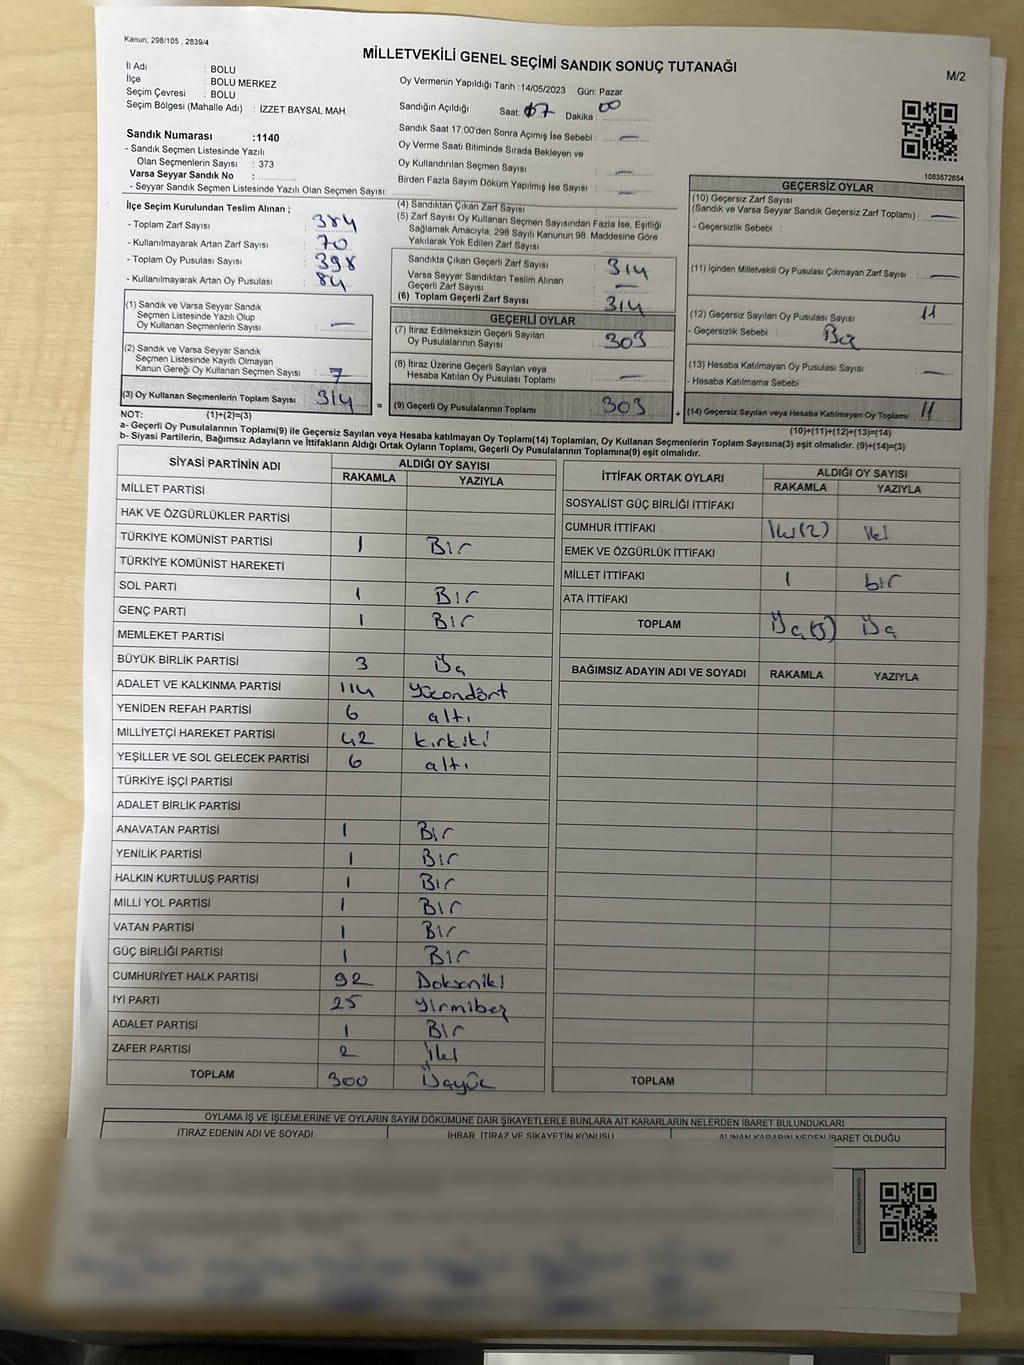 Kanun; 298/105 , 2839/4
MİLLETVEKİLİ GENEL SEÇİMİ SANDIK SONUÇ TUTANAĞI
M/2
İl Adı : BOLU
İlçe : BOLU MERKEZ
Seçim Çevresi : BOLU
Seçim Bölgesi (Mahalle Adı) : İZZET BAYSAL MAH.
Oy Vermenin Yapıldığı Tarih :14/05/2023 Gün: Pazar
Sandığın Açıldığı Saat: 07 Dakika : 00
Sandık Saat 17:00'den Sonra Açımış İse Sebebi : —
Oy Verme Saati Bitiminde Sırada Bekleyen ve
Oy Kullandırılan Seçmen Sayısı : —
Birden Fazla Sayım Döküm Yapılmış İse Sayısı : —
Sandık Numarası :1140
- Sandık Seçmen Listesinde Yazılı
Olan Seçmenlerin Sayısı : 373
Varsa Seyyar Sandık No :
- Seyyar Sandık Seçmen Listesinde Yazılı Olan Seçmen Sayısı:
1083572654
İlçe Seçim Kurulundan Teslim Alınan ;
- Toplam Zarf Sayısı : 384
- Kullanılmayarak Artan Zarf Sayısı : 70
- Toplam Oy Pusulası Sayısı : 398
- Kullanılmayarak Artan Oy Pusulası : 84
(1) Sandık ve Varsa Seyyar Sandık
Seçmen Listesinde Yazılı Olup
Oy Kullanan Seçmenlerin Sayısı : —
(2) Sandık ve Varsa Seyyar Sandık
Seçmen Listesinde Kayıtlı Olmayan
Kanun Gereği Oy Kullanan Seçmen Sayısı : 7
(3) Oy Kullanan Seçmenlerin Toplam Sayısı : 314
(4) Sandıktan Çıkan Zarf Sayısı :
(5) Zarf Sayısı Oy Kullanan Seçmen Sayısından Fazla İse, Eşitliği
Sağlamak Amacıyla; 298 Sayılı Kanunun 98. Maddesine Göre
Yakılarak Yok Edilen Zarf Sayısı :
Sandıkta Çıkan Geçerli Zarf Sayısı : 314
Varsa Seyyar Sandıktan Teslim Alınan
Geçerli Zarf Sayısı : —
(6) Toplam Geçerli Zarf Sayısı : 314
GEÇERLİ OYLAR
(7) İtiraz Edilmeksizin Geçerli Sayılan
Oy Pusulalarının Sayısı : 303
(8) İtiraz Üzerine Geçerli Sayılan veya
Hesaba Katılan Oy Pusulası Toplamı : —
= (9) Geçerli Oy Pusulalarının Toplamı : 303
GEÇERSİZ OYLAR
(10) Geçersiz Zarf Sayısı
(Sandık ve Varsa Seyyar Sandık Geçersiz Zarf Toplamı) : —
- Geçersizlik Sebebi :
(11) İçinden Milletvekili Oy Pusulası Çıkmayan Zarf Sayısı : —
(12) Geçersiz Sayılan Oy Pusulası Sayısı : 11
- Geçersizlik Sebebi :
(13) Hesaba Katılmayan Oy Pusulası Sayısı : —
- Hesaba Katılmama Sebebi
+ (14) Geçersiz Sayılan veya Hesaba Katılmayan Oy Toplamı : 11
NOT: (1)+(2)=(3)
(10)+(11)+(12)+(13)=(14)
a- Geçerli Oy Pusulalarının Toplamı(9) ile Geçersiz Sayılan veya Hesaba katılmayan Oy Toplamı(14) Toplamları, Oy Kullanan Seçmenlerin Toplam Sayısına(3) eşit olmalıdır. (9)+(14)=(3)
b- Siyasi Partilerin, Bağımsız Adayların ve İttifakların Aldığı Ortak Oyların Toplamı, Geçerli Oy Pusulalarının Toplamına(9) eşit olmalıdır.
SİYASİ PARTİNİN ADI ALDIĞI OY SAYISI
RAKAMLA YAZIYLA
MİLLET PARTİSİ
HAK VE ÖZGÜRLÜKLER PARTİSİ
TÜRKİYE KOMÜNİST PARTİSİ 1 Bir
TÜRKİYE KOMÜNİST HAREKETİ
SOL PARTİ 1 Bir
GENÇ PARTİ 1 Bir
MEMLEKET PARTİSİ
BÜYÜK BİRLİK PARTİSİ 3 Üç
ADALET VE KALKINMA PARTİSİ 114 Yüzondört
YENİDEN REFAH PARTİSİ 6 altı
MİLLİYETÇİ HAREKET PARTİSİ 42 kırkiki
YEŞİLLER VE SOL GELECEK PARTİSİ 6 altı
TÜRKİYE İŞÇİ PARTİSİ
ADALET BİRLİK PARTİSİ
ANAVATAN PARTİSİ 1 Bir
YENİLİK PARTİSİ 1 Bir
HALKIN KURTULUŞ PARTİSİ 1 Bir
MİLLİ YOL PARTİSİ 1 Bir
VATAN PARTİSİ 1 Bir
GÜÇ BİRLİĞİ PARTİSİ 1 Bir
CUMHURİYET HALK PARTİSİ 92 Doksaniki
İYİ PARTİ 25 Yirmibeş
ADALET PARTİSİ 1 Bir
ZAFER PARTİSİ 2 İki
TOPLAM 300 Üçyüz
İTTİFAK ORTAK OYLARI ALDIĞI OY SAYISI
RAKAMLA YAZIYLA
SOSYALİST GÜÇ BİRLİĞİ İTTİFAKI
CUMHUR İTTİFAKI İki(2) İki
EMEK VE ÖZGÜRLÜK İTTİFAKI
MİLLET İTTİFAKI 1 bir
ATA İTTİFAKI
TOPLAM Üç(3) Üç
BAĞIMSIZ ADAYIN ADI VE SOYADI RAKAMLA YAZIYLA
TOPLAM
OYLAMA İŞ VE İŞLEMLERİNE VE OYLARIN SAYIM DÖKÜMÜNE DAİR ŞİKAYETLERLE BUNLARA AİT KARARLARIN NELERDEN İBARET BULUNDUKLARI
İTİRAZ EDENİN ADI VE SOYADI İHBAR, İTİRAZ VE ŞİKAYETİN KONUSU ALINAN KARARIN NEDEN İBARET OLDUĞU